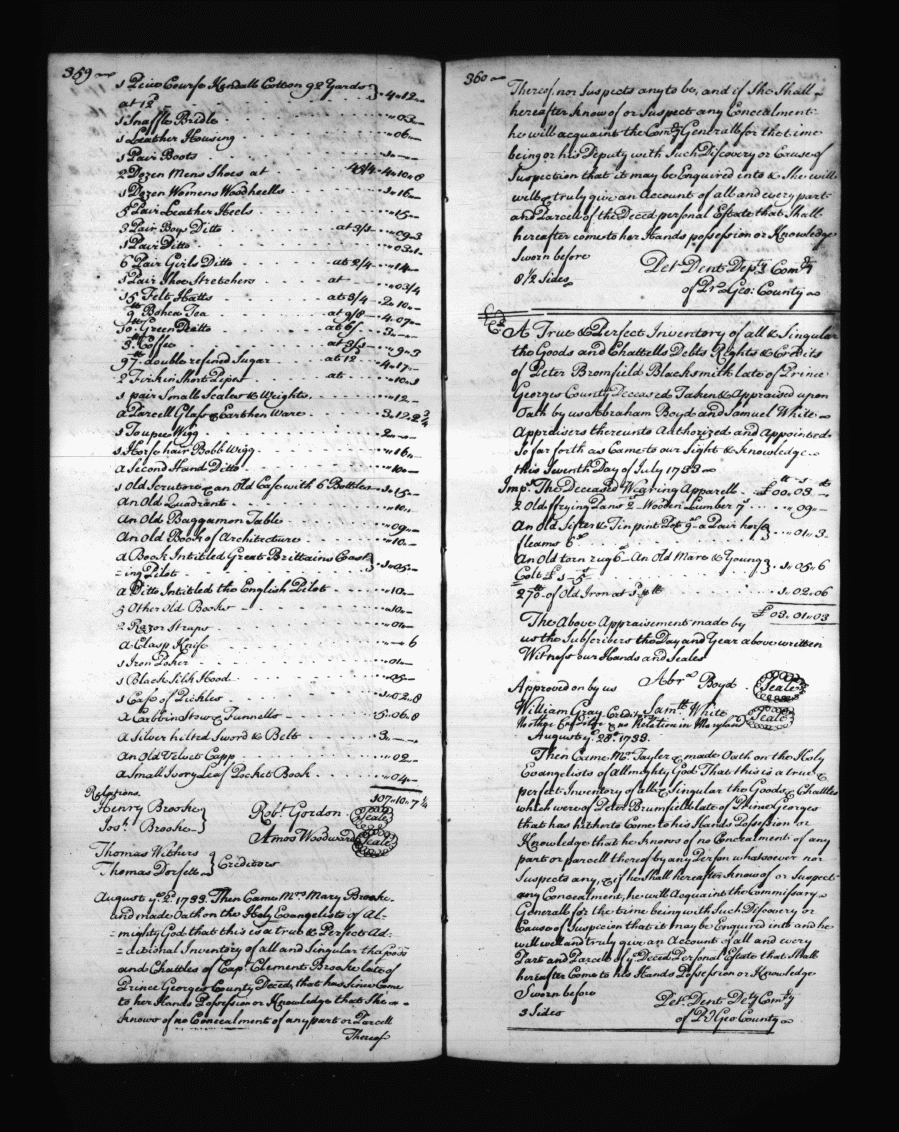 359
1 Peice Course Kendall Cotton 92 Yards
at 12d . 4 „ 12 „ —
1 Snaffle Bridle . . „ 03 „ —
1 Leather Housing . . „ 06 „ —
1 Pair Boots . . 1 „ — „ —
2 Dozen Mens Shoes at . . 45/4 . 4 „ 10 „ 8
1 Dozen Womens Woodheells . . 1 „ 16 „ —
5 Pair Leather Heels . . „ 15 „ —
3 Pair Boys Ditto . . at 3/1 . . „ 09 „ 3
1 Pair Ditto . . „ 03 „ 1
6 Pair Girls Ditto . . at 2/4 . . „ 14 „ —
1 Pair Shoe Stretchers . . at . . „ 03/4
15 Felt Hatts . . at 3/4 . 2 „ 10 „ —
9 tt Bohea Tea . . at 9/8 . 4 „ 07 „ —
10 tt Green Ditto . . at 6/ . 3 „ — „ —
3 tt Coffee . . at 3/1 . . „ 9 „ 3
97 tt double refined Sugar . . at 12d . 4 „ 17 „ —
2 Firkin Short Pipes . . at . . „ 10 „ 1
1 pair Small Scales & Weights . . „ 12 „ —
a Parcell Glass & Earthen Ware . . 3 „ 12 „ 2 3/4
1 Toupee Wigg . . 2 „ — „ —
1 Horse hair Bobb Wigg . . „ 16 „ —
a Second Hand Ditto . . „ 10 „ —
1 Old Scrutore & an Old Case with 6 Bottles . 1 „ 15 „ —
An Old Quadrant . . „ 10 „ —
An Old Baggamon Table . . „ 09 „ —
An Old Book of Architecture . . „ 10 „ —
a Book Intitled Great Brittains Coast
= ing Pilot . . 1 „ 05 „ —
a Ditto Intitled the English Pilot . . „ 10 „ —
5 Other Old Books . . „ 10 „ —
2 Razor Straps . . „ 01 „ —
a Clasp Knife . . „ — „ 6
1 Iron Poker . . „ 01 „ —
1 Black Silk Hood . . „ 05 „ —
1 Case of Pickles . . 1 „ 02 „ 8
2 Carbbin Stow & Funnells . 5 „ 06 „ 8
a Silver hilted Sword & Belt . . 3 „ — „ —
An Old Velvet Capp . . „ 02 „ —
a Small Ivory Leaf Pocket Book . . „ 04 „ —
107 „ 10 „ 7 1/4
Relations
Henry Brooke
Josh. Brooke
Robt. Gordon Seale
Amos Woodward Seale
Thomas Withers
Thomas Dorsett Creditors
August ye 2d 1733. Then Came Mrs Mary Brooke
and made Oath on the Holy Evangelists of Al-
= mighty God that this is a true & Perfect Ad-
= ditional Inventory of all and Singular the Goods
and Chattles of Capt. Clement Brooke late of
Prince Georges County Deced, that has Since Come
to her Hands Possession or Knowledge that She
knows of no Concealment of any part or Parcell
Thereof
360
Thereof nor Suspects any to be, and if She Shall
hereafter know of or Suspect any Concealment
he will acquaint the Comry Generall for the time
being or his Deputy with Such Discovery or Cause of
Suspicion that it may be Enquired into & She will
well & truly give an Account of all and every part
and Parcell of the Deced personal Estate that Shall
hereafter come to her Hands possession or Knowledge
Sworn before
8 1/2 Sides
Petr. Dent Depty Comry
of Pr. Geo: County
Ex A True & Perfect Inventory of all & Singular
the Goods and Chattells Debts Rights & Credits
of Peter Bromfield Blacksmith late of Prince
Georges County Deceased Taken & Appraised upon
Oath by us Abraham Boyd and Samuel White
Appraisers thereunto Authorized and Appointed
So far forth as Came to our Sight & Knowledge
this Seventh Day of July 1733
Imps. The Deceased Wearing Apparell . £ 00 „ 03 „ —
2 Old frying Pans 2 Wooden Lumber 7s . . „ 09 „ —
An Old Sifter & Tin pint Pott 9d a Pair horse
fleams 6d . . „ 01 „ 3
An Old torn rug 6d An Old Mare & Young
Colt £ 1 „ 5 . . 1 „ 05 „ 6
270 tt of Old Iron at 1d ℔ tt . . 1 „ 02 „ 06
£ 03 „ 01 „ 03
The Above Appraisement made by
us the Subscribers the Day and Year above written
Witness our Hands and Seales
Approved on by us
Abrm Boyd Seale
William Gray Creditr. Samll White Seale
no Relation in Maryland
August ye 28th 1733.
Then Came Mr. Tayler & made Oath on the Holy
Evangelists of Allmighty God That this is a true &
perfect Inventory of all & Singular the Goods & Chattles
which were of Peter Brumfield late of Prince Georges
that has hitherto Come to his Hands Possession or
Knowledge that he knows of no Concealment of any
part or parcell thereof by any Person whatsoever nor
Suspects any, & if he shall hereafter know of or Suspect
any Concealment, he will Acquaint the Commissary
Generall for the time being with Such Discovery or
Cause of Suspicion that it may be Enquired into and he
will well and truly give an Account of all and every
Part and Parcell of ye Deced Personal Estate that Shall
hereafter Come to his Hands Possession or Knowledge
Sworn before
3 Sides
Petr. Dent Dety Comry
of Pr Geo County